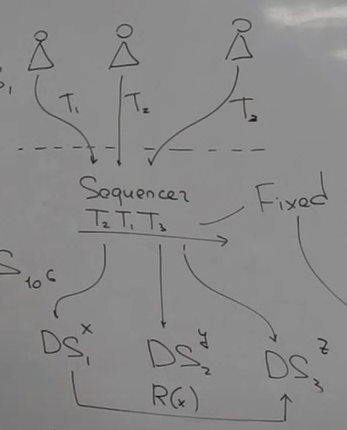 T₁ T₂ T₃
Sequencer
T₂ T₁ T₃ Fixed
S₁₀₆
DS₁ˣ DS₂ʸ DS₃ᶻ
R(x)